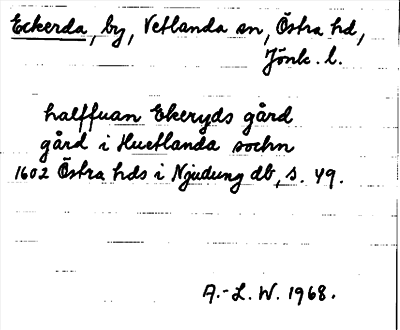 Eckerda, by, Vetlanda sn, Östra hd,
Jönk. l.
halffuan Ekeryds gård
gård i Huetlanda sochn
1602 Östra hds i Njudung db, s. 49.
A.-L. W. 1968.